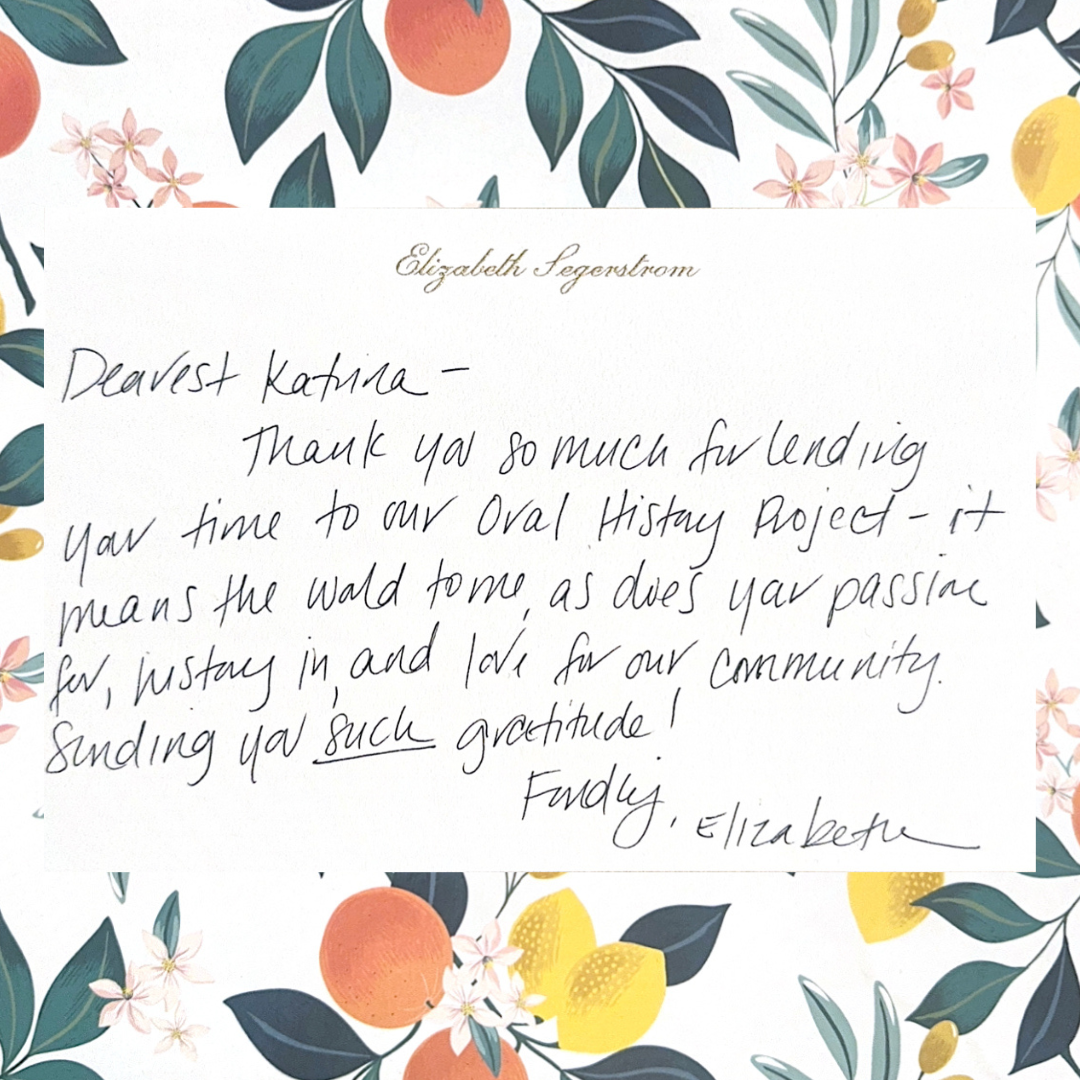 Elizabeth Segerstrom
Dearest Katrina –
Thank you so much for lending
your time to our Oral History Project – it
means the world to me, as does your passion
for, history in, and love for our community.
Sending you such gratitude!
Fondly, Elizabeth